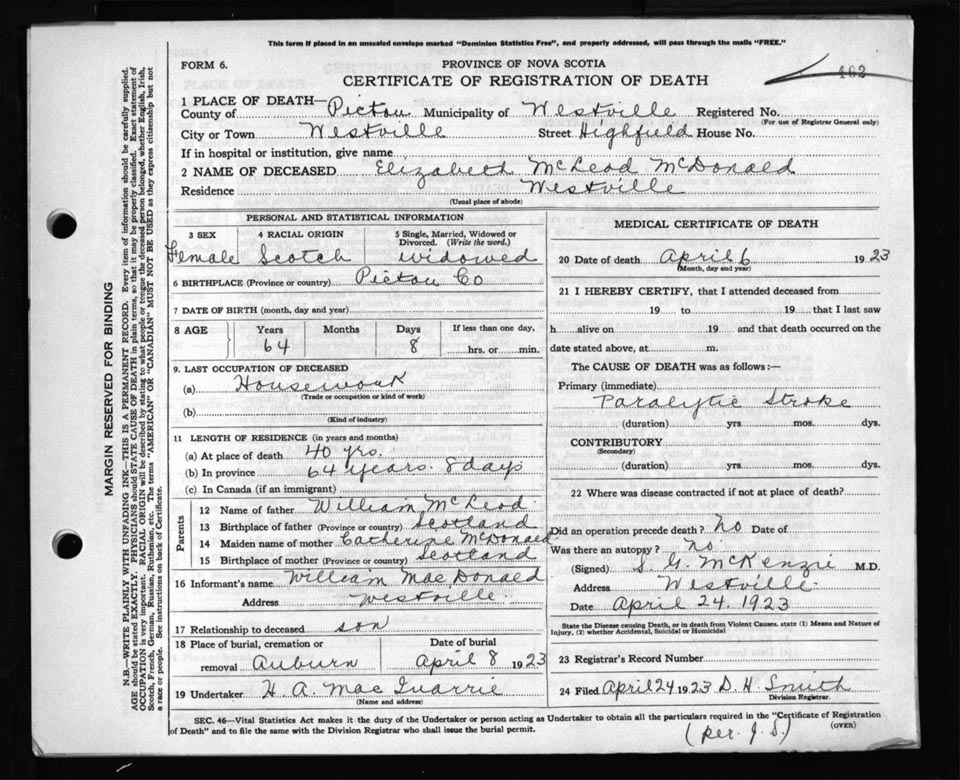 This form if placed in an unsealed envelope marked "Dominion Statistics Free", and properly addressed, will pass through the mails "FREE."
FORM 6.
PROVINCE OF NOVA SCOTIA
CERTIFICATE OF REGISTRATION OF DEATH
402
1 PLACE OF DEATH—
County of Pictou Municipality of Westville Registered No.
(For use of Registrar General only)
City or Town Westville Street Highfield House No.
If in hospital or institution, give name
2 NAME OF DECEASED Elizabeth McLeod McDonald
Residence Westville
(Usual place of abode)
PERSONAL AND STATISTICAL INFORMATION
3 SEX 4 RACIAL ORIGIN 5 Single, Married, Widowed or Divorced. (Write the word.)
Female Scotch widowed
6 BIRTHPLACE (Province or country) Pictou Co
7 DATE OF BIRTH (month, day and year)
8 AGE Years Months Days If less than one day,
64 8 hrs. or min.
9. LAST OCCUPATION OF DECEASED
(a) Housework
(Trade or occupation or kind of work)
(b)
(Kind of industry)
11 LENGTH OF RESIDENCE (in years and months)
(a) At place of death 40 yrs.
(b) In province 64 years. 8 days
(c) In Canada (if an immigrant)
Parents
12 Name of father William McLeod
13 Birthplace of father (Province or country) Scotland
14 Maiden name of mother Catherine McDonald
15 Birthplace of mother (Province or country) Scotland
16 Informant's name William MacDonald
Address Westville.
17 Relationship to deceased son
18 Place of burial, cremation or Date of burial
removal Auburn April 8 1923
19 Undertaker H. A. Mac Quarrie
(Name and address)
MEDICAL CERTIFICATE OF DEATH
20 Date of death April 6 1923
(Month, day and year)
21 I HEREBY CERTIFY, that I attended deceased from
19 to 19 that I last saw
h alive on 19 and that death occurred on the
date stated above, at m.
The CAUSE OF DEATH was as follows:—
Primary (immediate)
Paralytic Stroke
(duration) yrs mos. dys.
CONTRIBUTORY
(Secondary)
(duration) yrs. mos. dys.
22 Where was disease contracted if not at place of death?
Did an operation precede death? No Date of
Was there an autopsy? No
(Signed) S. G. McKenzie M.D.
Address Westville.
Date April 24. 1923
State the Disease causing Death, or in death from Violent Causes, state (1) Means and Nature of
Injury, (2) whether Accidental, Suicidal or Homicidal
23 Registrar's Record Number
24 Filed April 24 1923 D. H. Smith
Division Registrar.
SEC. 46—Vital Statistics Act makes it the duty of the Undertaker or person acting as Undertaker to obtain all the particulars required in the "Certificate of Registration
of Death" and to file the same with the Division Registrar who shall issue the burial permit.
(OVER)
(per. J. S.)
MARGIN RESERVED FOR BINDING
N.B.—WRITE PLAINLY WITH UNFADING INK—THIS IS A PERMANENT RECORD. Every item of information should be carefully supplied.
AGE should be stated EXACTLY. PHYSICIANS should STATE CAUSE OF DEATH in plain terms, so that it may be properly classified. Exact statement of
OCCUPATION is very important. RACIAL ORIGIN will be described by stating to what people or tongue the deceased person belonged, whether English, Irish,
Scotch, French, German, Russian, Ruthenian, etc. The terms "AMERICAN" OR "CANADIAN" MUST NOT BE USED as they express citizenship but not
a race or people. See instructions on back of Certificate.